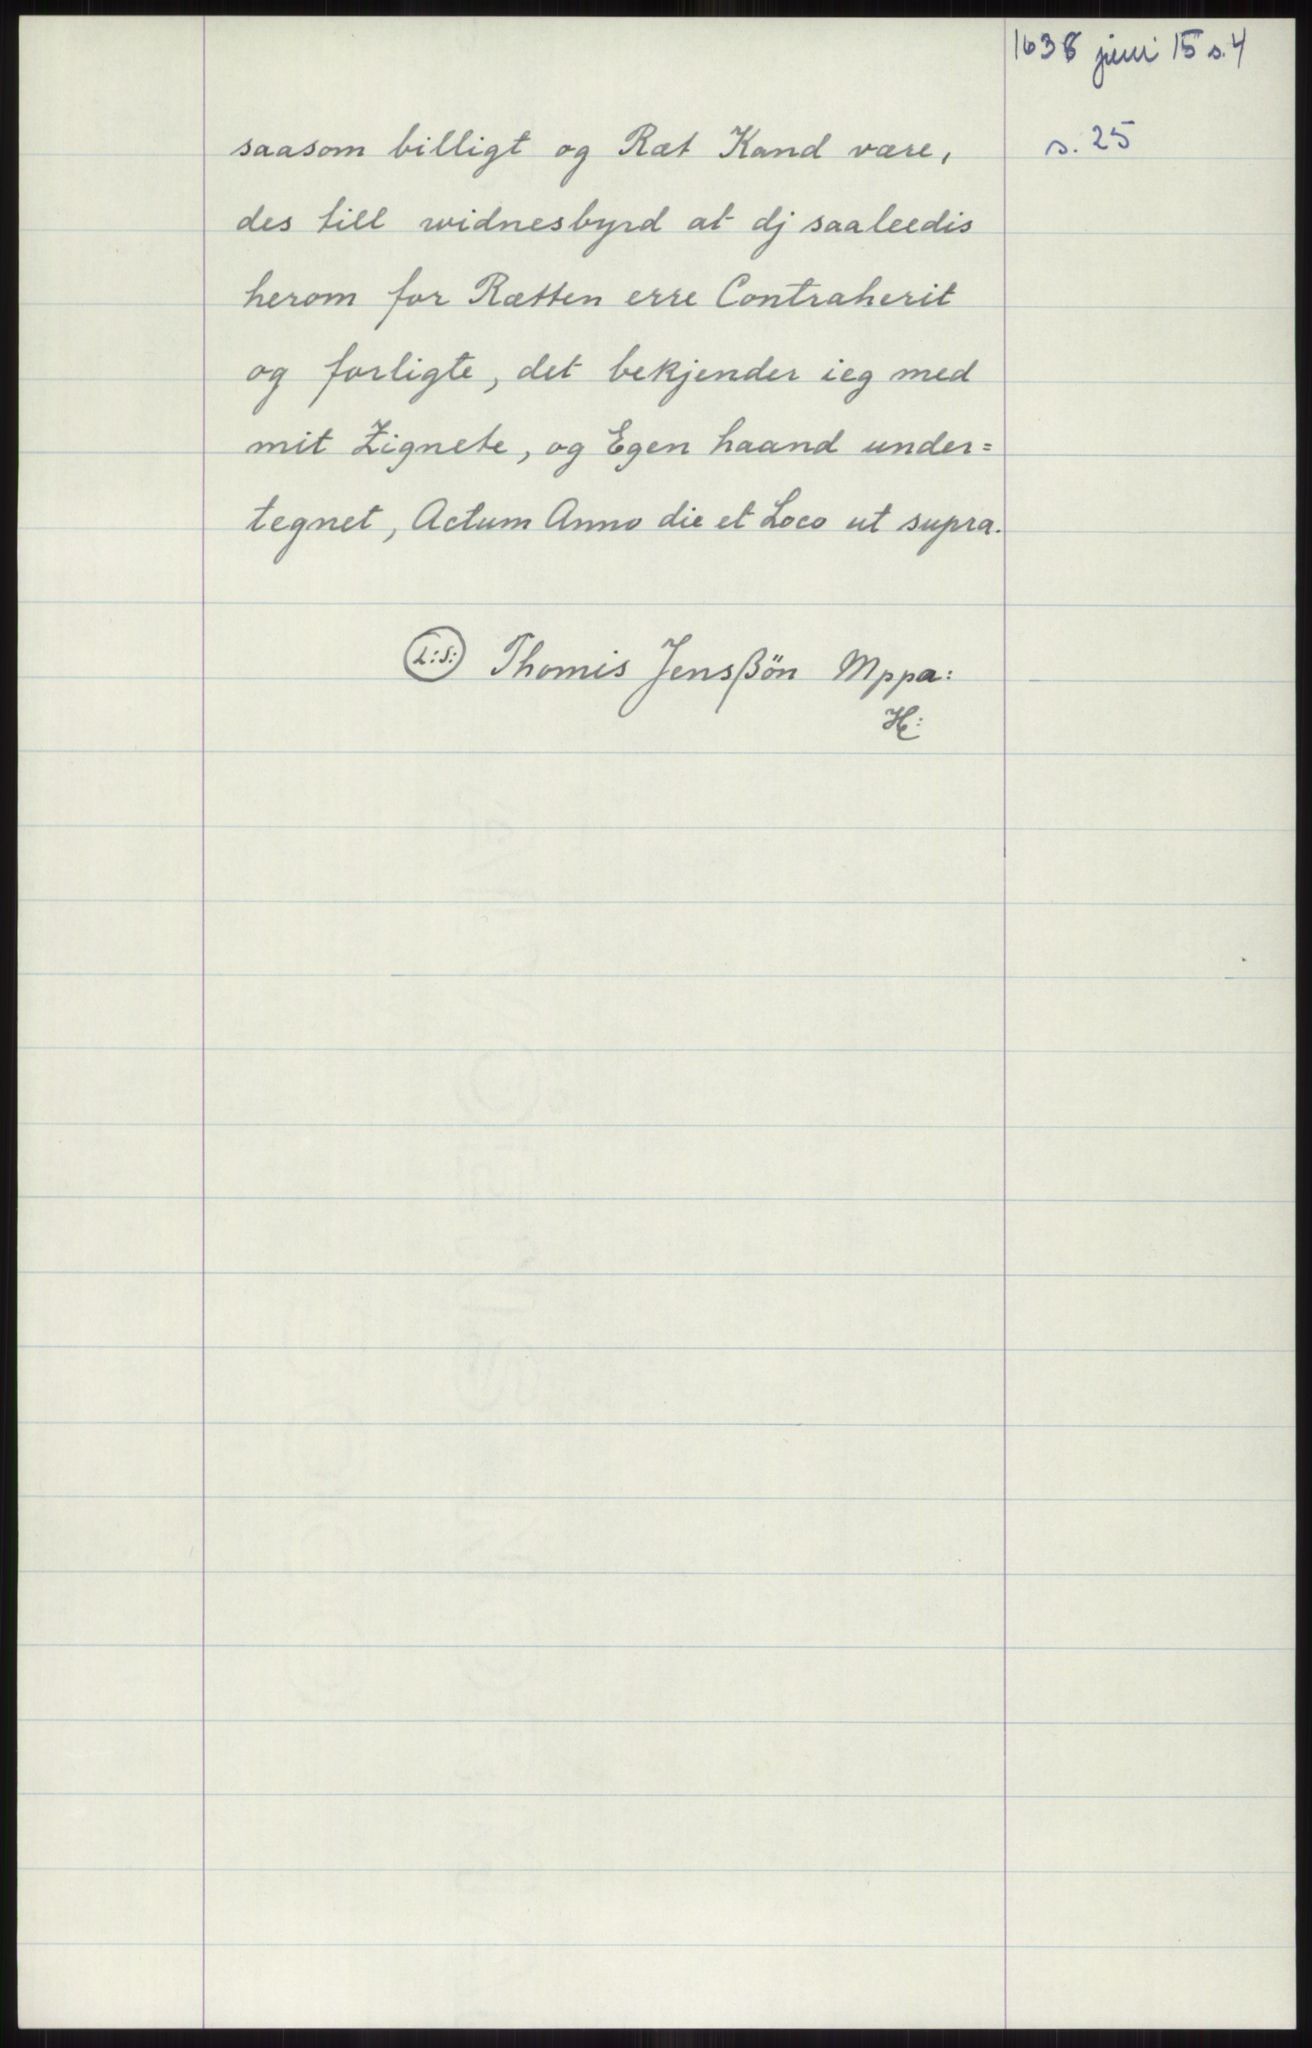 1638 juni 15 s. 4
s. 25
saasom billigt og Ræt Kand være,
des till widnesbyrd at dj saaleedis
herom for Rætten erre Contraherit
og forligte, det bekjender ieg med
mit Zignete, og Egen haand under=
tegnet, Actum Anno die et Loco ut supra.
L:S: Thomis Jensßön Mppa: